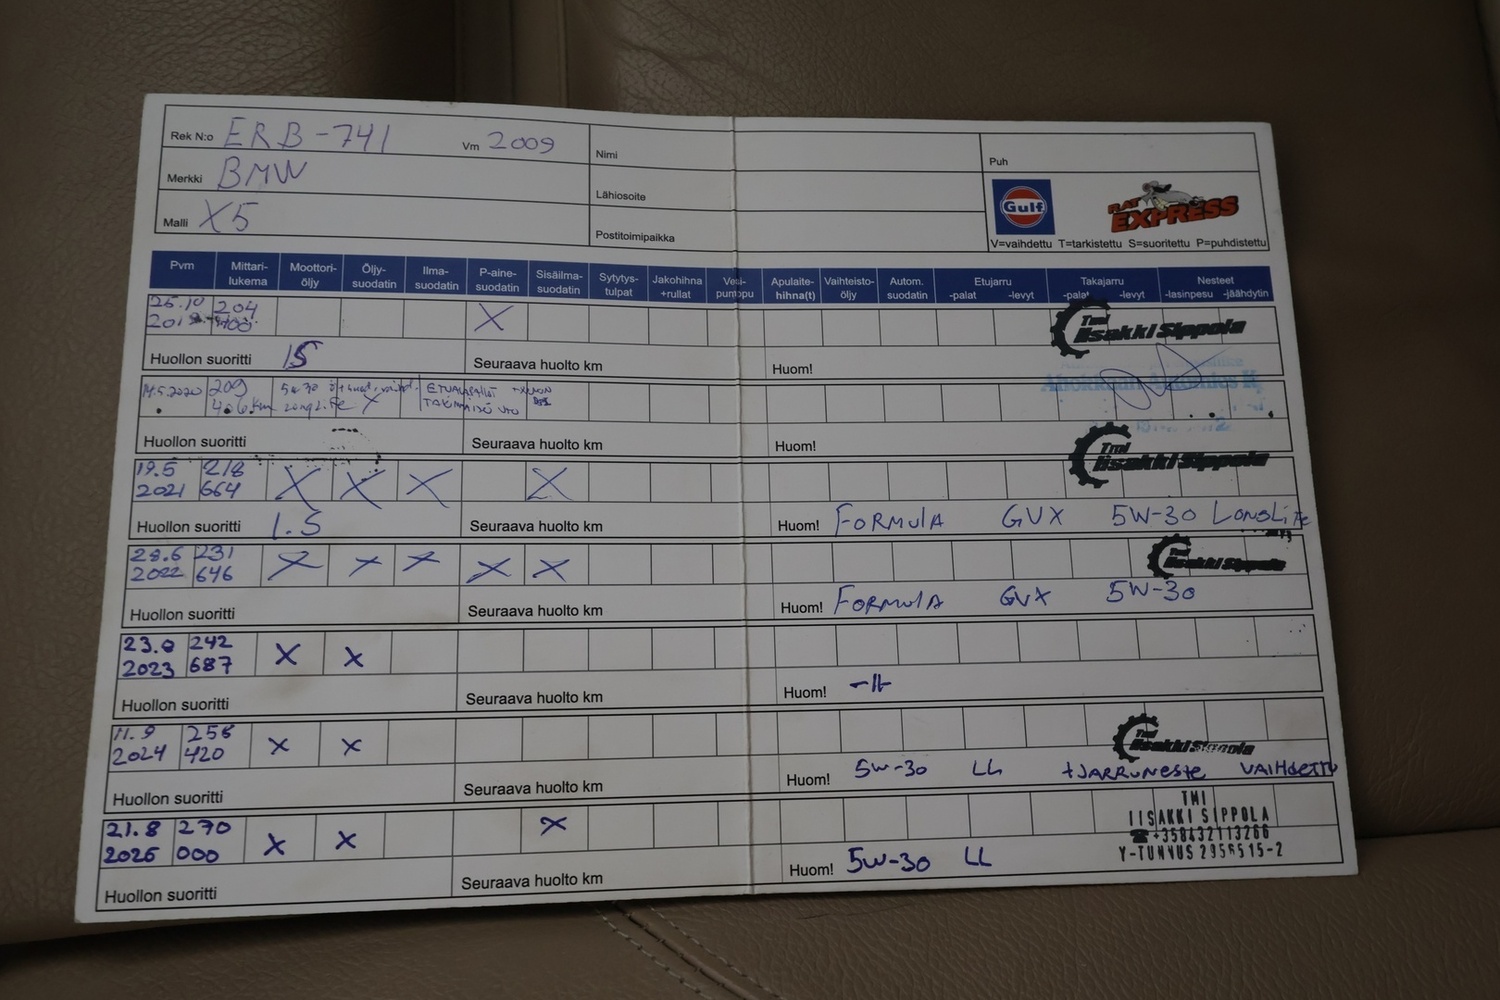 Rek N:o ERB-741 Vm 2009 Nimi Puh
Merkki BMW Lähiosoite
Malli X5 Postitoimipaikka
Gulf
FLAT EXPRESS
V=vaihdettu T=tarkistettu S=suoritettu P=puhdistettu
Pvm Mittari-lukema Moottori-öljy Öljy-suodatin Ilma-suodatin P-aine-suodatin Sisäilma-suodatin Sytytys-tulpat Jakohihna +rullat Vesi-pumppu Apulaite-hihna(t) Vaihteisto-öljy Autom. suodatin Etujarru -palat -levyt Takajarru -palat -levyt Nesteet -lasinpesu -jäähdytin
25.10 204 X
Tmi Iisakki Sippola
Huollon suoritti IS Seuraava huolto km Huom!
14.5.2020 209 5w-30
406 km LongLife X
Huollon suoritti Seuraava huolto km Huom!
Tmi Iisakki Sippola
19.5 218 X X X X
2021 664
Huollon suoritti I.S Seuraava huolto km Huom! FORMULA GVX 5W-30 LONGLiFe
28.6 231 X X X X X
2022 646
Tmi Iisakki Sippola
Huollon suoritti Seuraava huolto km Huom! FORMULA GVX 5W-30
23.9 242 X X
2023 687
Huollon suoritti Seuraava huolto km Huom! -11-
11.9 256 X X
2024 420
Tmi Iisakki Sippola
Huollon suoritti Seuraava huolto km Huom! 5W-30 LL +JARRUNESTE VAIHDETTU
21.8 270 X X X
2025 000
TMI
IISAKKI SIPPOLA
☎+358432113266
Y-TUNNUS 2956515-2
Huollon suoritti Seuraava huolto km Huom! 5W-30 LL